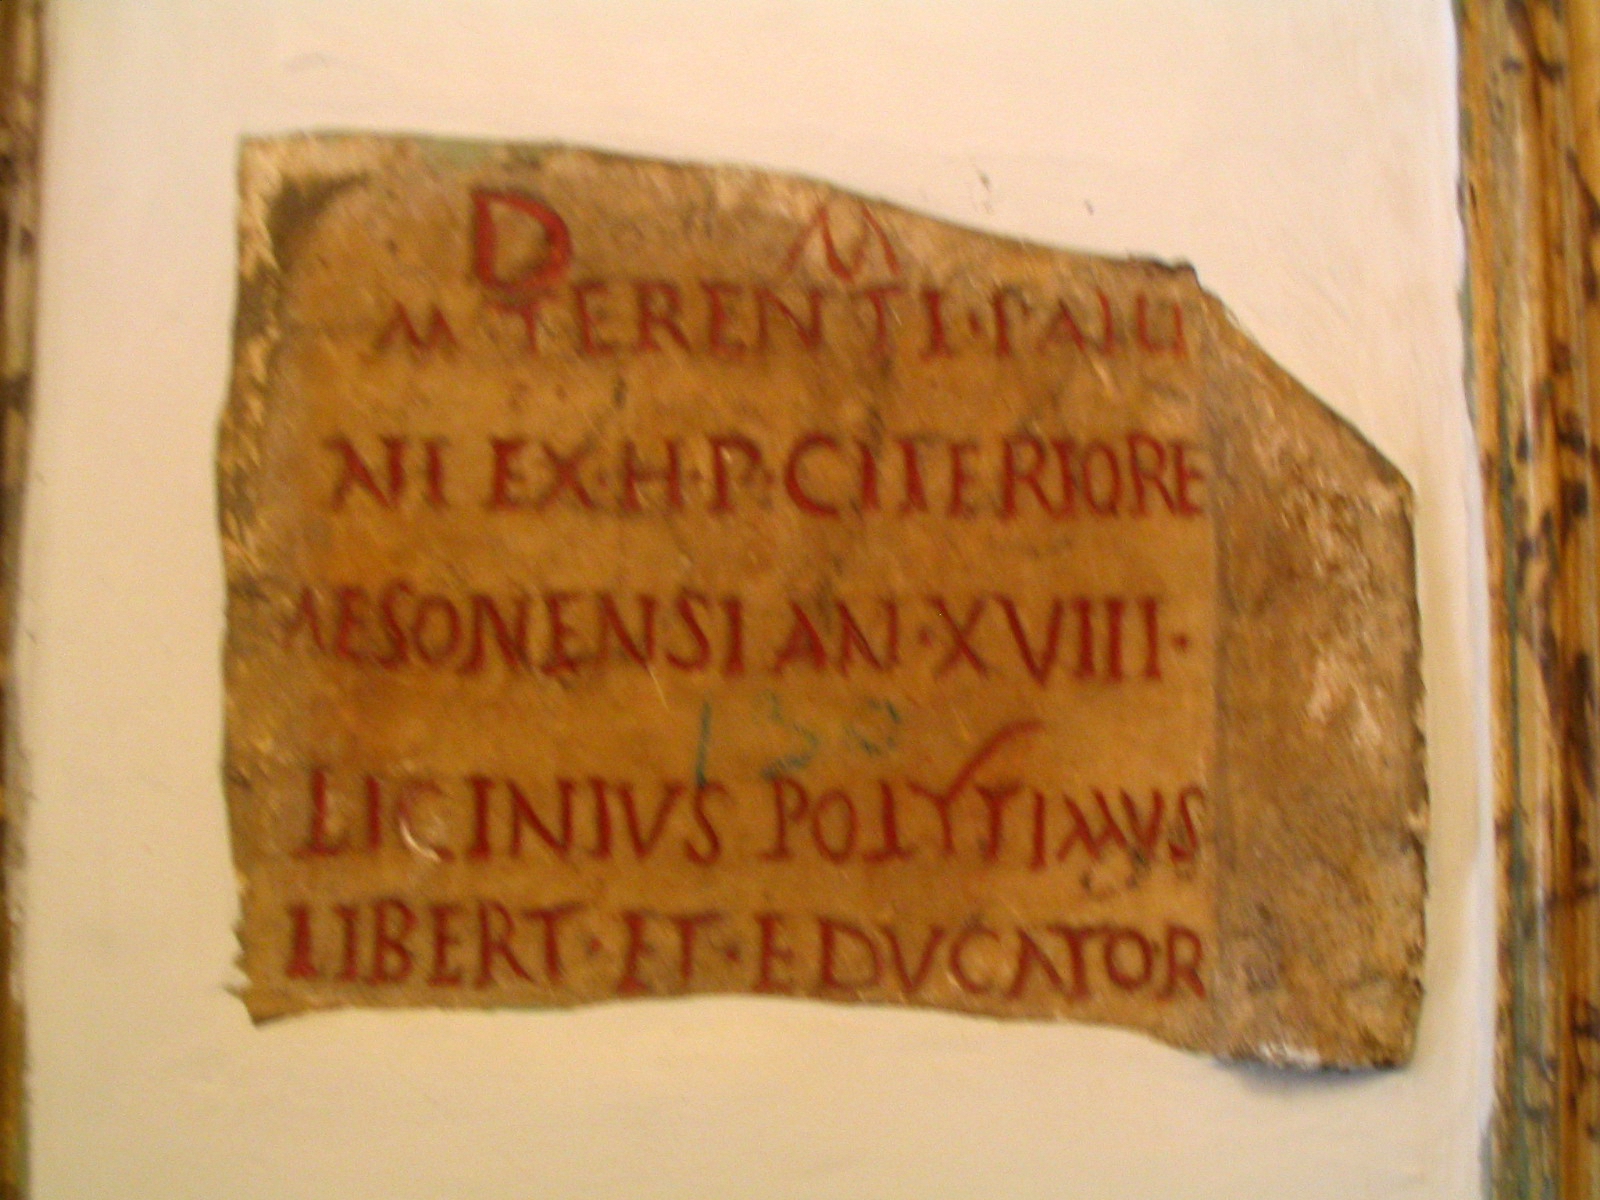 D M
M TERENTI·PATII
NI EX·H·P·CITERIORE
AESONENSI AN·XVIII·
130
LICINIVS POLYTIMVS
LIBERT·ET·EDVCATOR